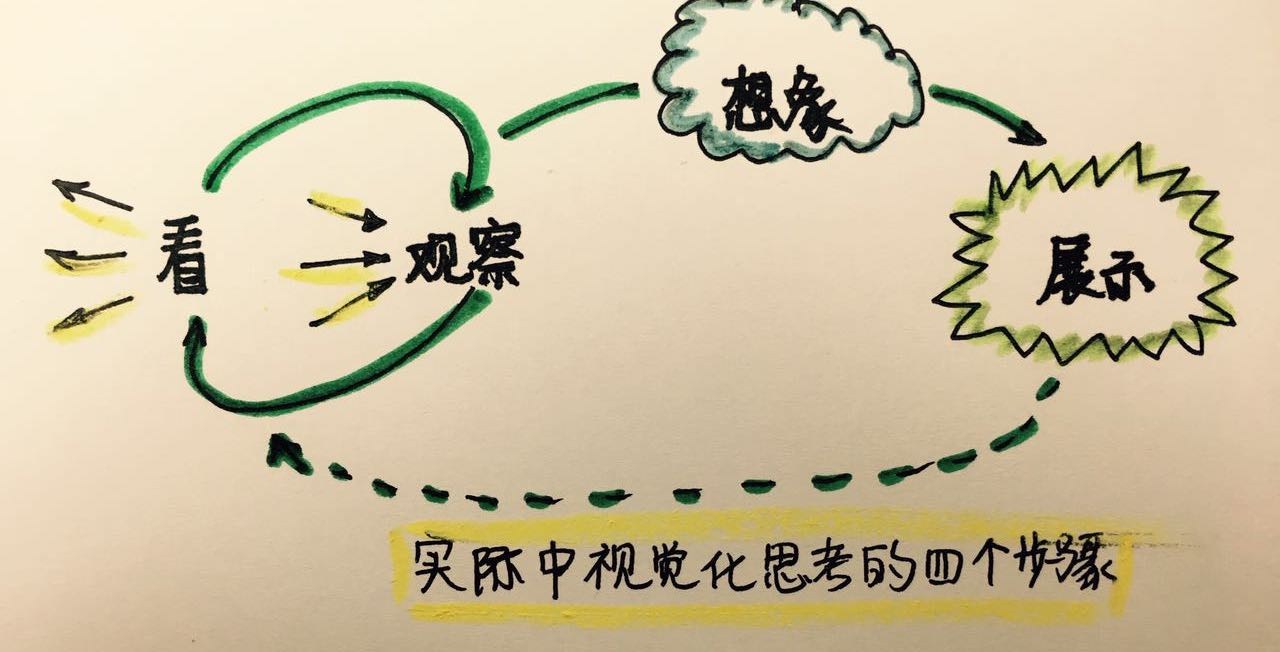 想象
看
观察
展示
实际中视觉化思考的四个步骤